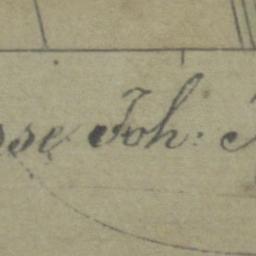 sse Joh: